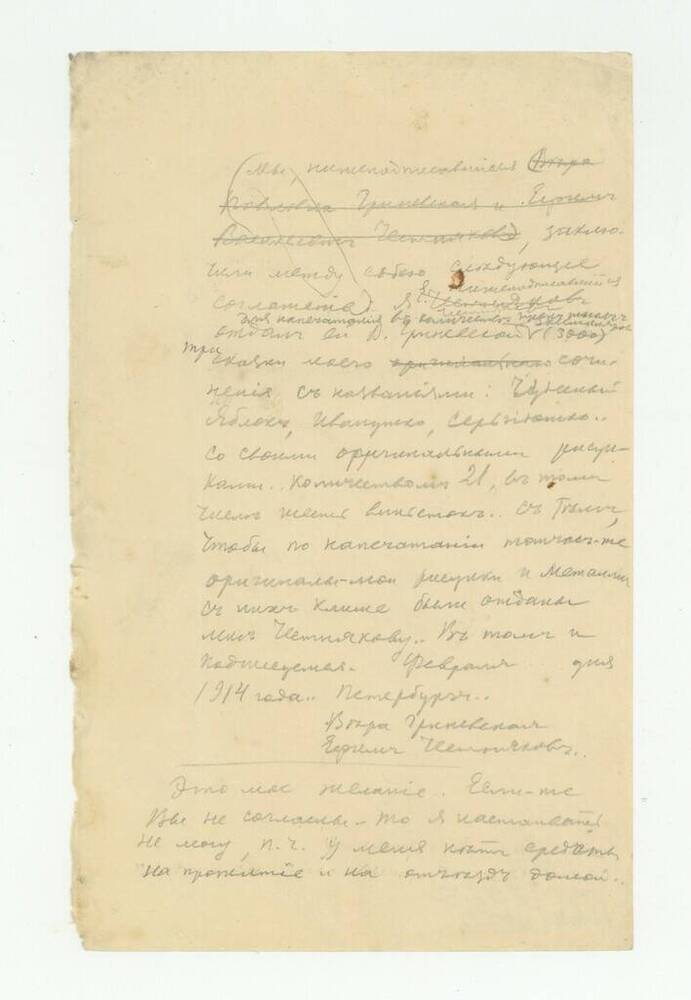 (Мы, нижеподписавшiйся (Вѣра
Павловна Гриневская и Ефимъ
Васильевичъ Честняковъ), заклю-
чили между собою слѣдующее
соглашенiе). Я Е. нижеподписавшiйся
Честняковъ
для напечатанiя въ количествѣ трехъ тысячъ экземпляровъ
отдалъ ей В. Гриневской (3000)
три сказки моего оригинальнаго сочи-
ненiя съ названiями: Чудесный
Яблокъ, Иванушко, Сергiюшко..
со своими оригинальными рисун-
ками.. Количествомъ 21, въ томъ
числѣ шесть виньетокъ.. Съ тѣмъ,
чтобы по напечатанiи тотчасъ-же
оригиналы-мои рисунки и металлич
съ нихъ клише были отданы
мнѣ Честнякову.. Въ томъ и
подписуемся. Февраля дня
1914 года.. Петербургъ..
Вѣра Гриневская
Ефимъ Честняковъ..
Это мое желанiе. Если-же
Вы не согласны - то я настаивать
не могу, п.ч. у меня нѣтъ средствъ
на прожитiе и на отъѣздъ домой..